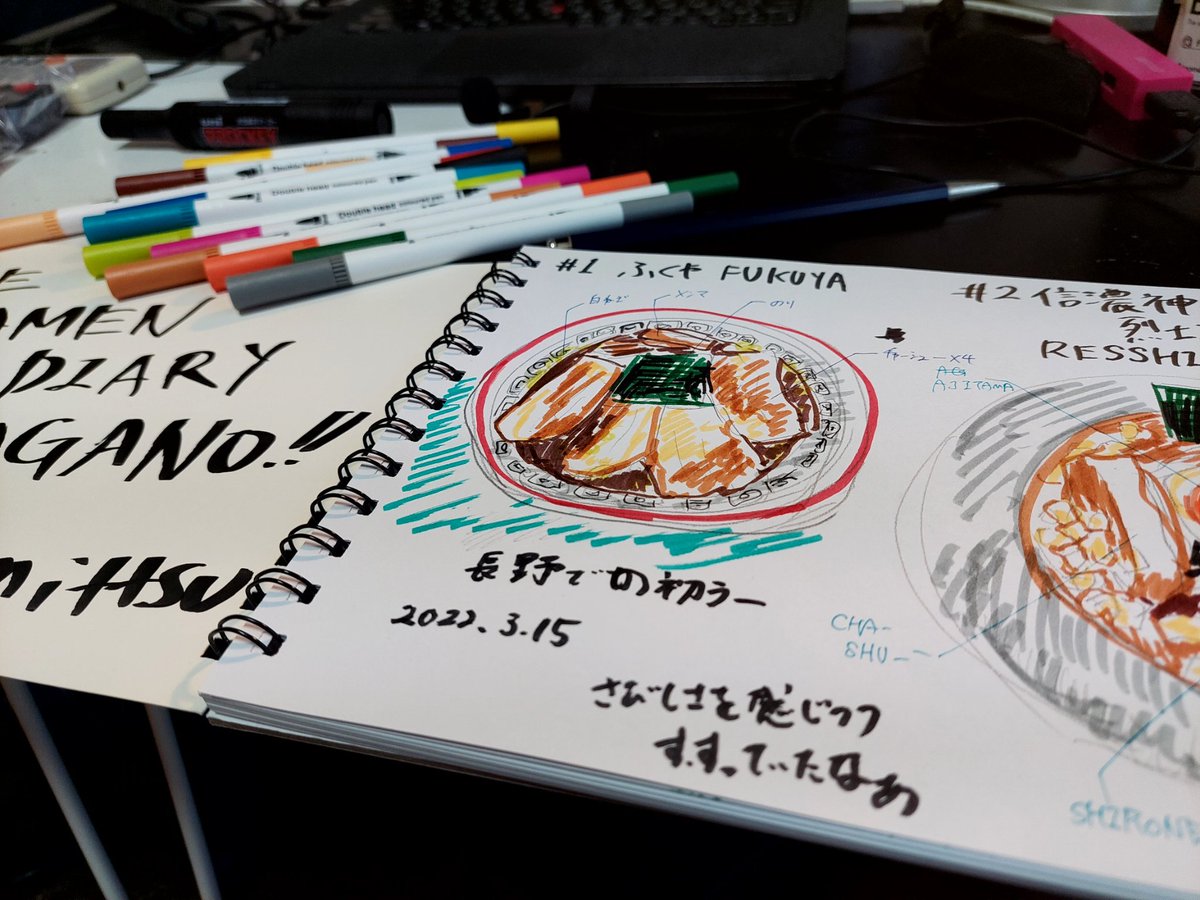 AMEN
DIARY
AGANO.!!
miHSU
#1 ふくや FUKUYA
白ネギ
メンマ
のり
チャーシュー×4
長野での初ラー
2022.3.15
さびしさを感じつつ
すすっていたなあ
#2 信濃神
烈士
RESSHI
味玉
AJITAMA
CHA-
SHU-
SHIRONE
Double head coloured pen
Double head coloured pen
PROCKEY